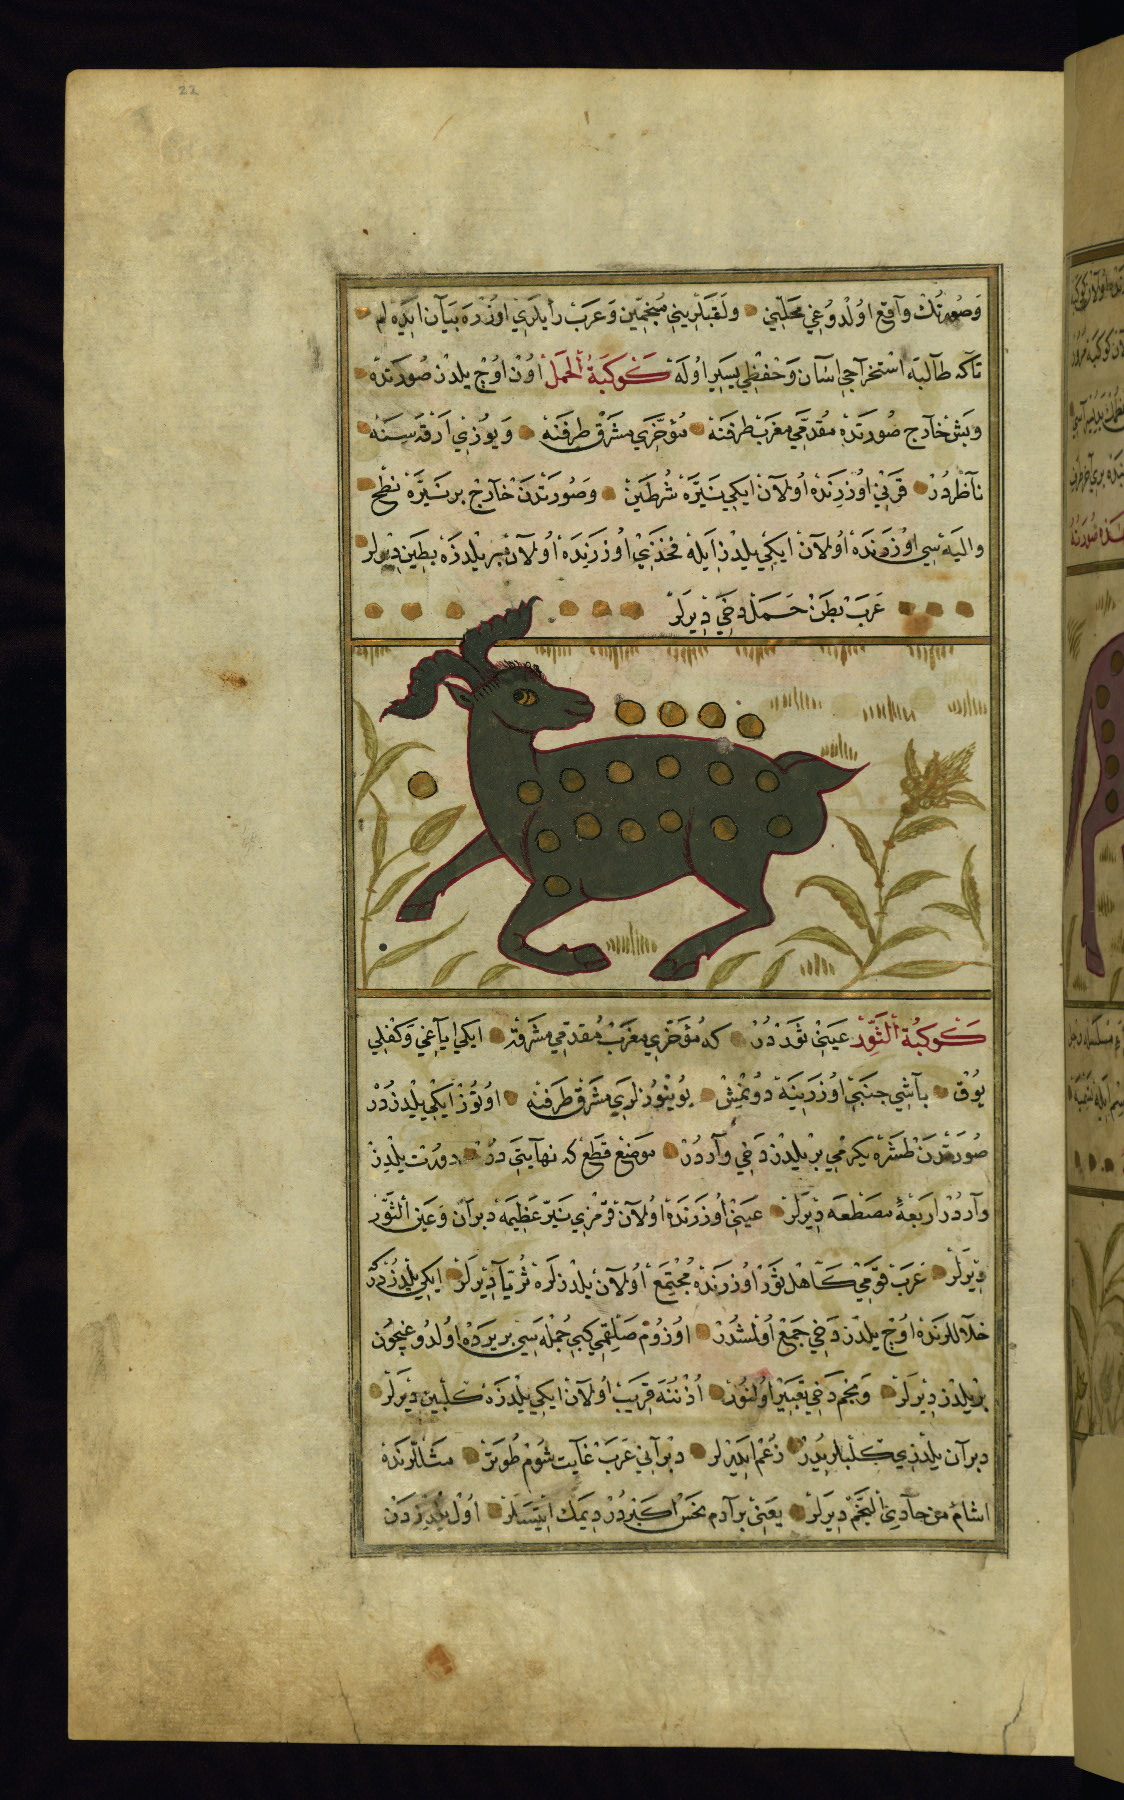 22
وَصُورَتُكْ وَاقِع اوُلْدُوغِي مَحَلِّنِي وَلَقَبْلَرِينِي مُنَجِّمِين وَعَرَبْ رَأْيلَرِي اوُزْرَه بَيَان ايَدَه لم
تَاكه طَالِبَه اسْتِخْرَاجِي اسَان وَحِفْظِي يَسِير اوُلَه كَوْكَبَةُ الْحَمَلْ اوُنْ اوُجْ يِلْدِزْ صُورَتَدَه
وَبَشْ خَارِج صُورَتَدَه مُقَدَّمِي مَغْرَبْ طَرَفِنَه مُؤَخَّرِي مَشْرِقْ طَرَفِنَه وَيُوزِي ارْقَه سِنَه
نَاظِرْدُرْ قَرْنِي اوُزَرِنَدَه اوُلَانْ ايكِي نَيِّرَه شَرَطَيْنْ وَصُورَتْدَنْ خَارِجْ بِرْ نَيِّرَه نَطْح
وَالْيَه سِي اوُزَرِنْدَه اوُلَانْ ايكِي يِلْدِزْ ايلَه فَخْذِنِي اوُزَرِنِدَه اوُلَانْ بِرْ يِلْدِزَه بُطَيْن دِيرلَر
عَرَبْ بَطْنْ حَمَلْ دَخِي دِيرلَرْ
كَوْكَبَةُ الثَّوْرْ عَيْنِي ثَوْرْدُرْ كه مُؤَخَّرِي مَغْرَبْ مُقَدَّمِي مَشْرِقَه ايكِي اياغِي وَكَفَلِي
يُوْقْ بَاشِي جَنْبِي اوُزَرِينَه دُونْمِشْ بُوينُوزْلَرِي مَشْرِقْ طَرَفِنَه اوُتُوزْ ايكِي يِلْدِزْدُرْ
صُورَتْدَنْ طَشْرَه يكِرْمِي بِرْ يِلْدِزْ دَخِي وَارْدُرْ مَوْضِع قَطْع كه نهَايَتِي دُرْ دورْت يِلْدِزْ
وَارْدُرْ ارَبَعَةِ مُصَنْطَعَه دِيرَلَرْ عَيْنِي اوُزَرَنَدَه اوُلَانْ قِرْمِزِي نَيِّر عَظِيمَه دَبَرَان وَعَيْن الثَّوْرْ
دِيرَلَرْ عَرَبْ قَوْمِي كَاهِل ثَوْرْ اوُزَرَنْدَه مُجْتَمِعْ اوُلَانْ يِلْدِزْلَرَه ثُرَيَّا دِيرَلَرْ ايكِي يِلْدِزْدُرْكه
خِلَالْلَرَنْدَه اوُجْ يِلْدِزْ دَخِي جَمْعْ اوُلْمِشْدُرْ اوُزُومْ صَلْقِمِي كبِي جُمْلَه سِي بِريرَدَه اوُلْدُوغِيچُون
بِرْ يِلْدِزْ دِيرَلَرْ وَنَجْم دَخِي تَعْبِيرْ اوُلُنُورْ اذُنَنَه قَرِيبْ اوُلَانْ ايكِي يِلْدِزَه كَلْبَيْن دِيرَلَرْ
دبران يِلْدِزِي كَلْبْلَرِيدُرْ زَعْم ايدَرلَر دبَرَانِي عَرَبْ غَايَت شُومْ طُوتَرْ مَثَلْلَرِنْدَه
اشْأمُ مِن حَادِي النَّجْم دِيرَلَرْ يَعْنِي بِر آدم نَحْس اكْبَرْدُرْ دِيمَك ايتسَلَرْ اوُل يِلْدِزْدَنْ